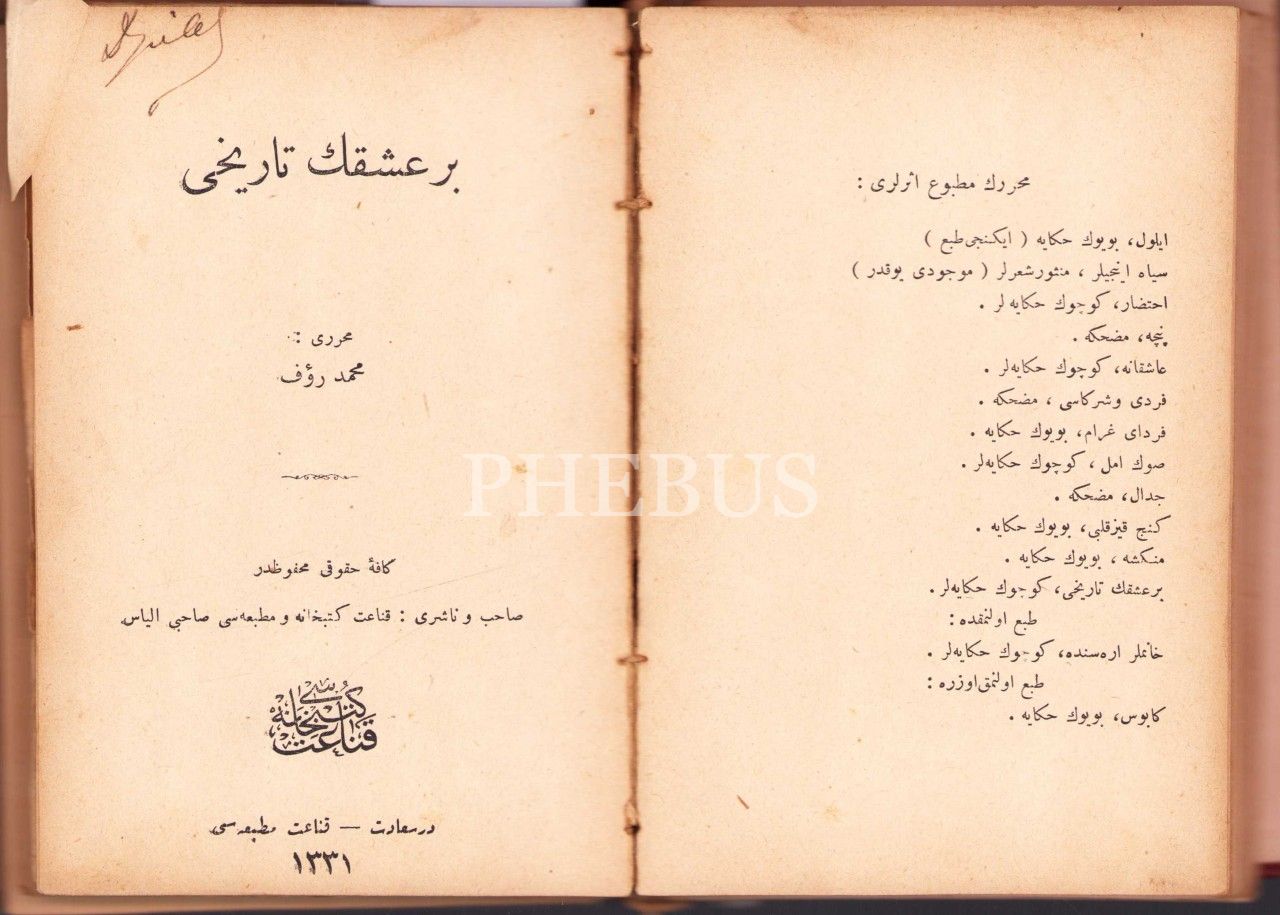 محررك مطبوع اثرلری :
ایلول، بویوك حكایه ( ایكنجی طبع )
سیاه اینجیلر ، منثور شعرلر ( موجودی یوقدر )
احتضار، كوچوك حكایه‌لر .
پنچه، مضحكه .
عاشقانه، كوچوك حكایه‌لر .
فردی وشركاسی ، مضحكه .
فردای غرام، بویوك حكایه .
صوك امل ، كوچوك حكایه‌لر .
جدال، مضحكه .
كنج قیزقلبی، بویوك حكایه .
منكشه ، بویوك حكایه .
برعشقك تاریخی، كوچوك حكایه‌لر.
طبع اولنمقده :
خانملر اره‌سنده، كوچوك حكایه‌لر .
طبع اولنمق اوزره :
كابوس، بویوك حكایه .
بر عشقك تاریخی
محرری :
محمد رؤف
كافهٔ حقوقی محفوظدر
صاحب و ناشری : قناعت كتبخانه و مطبعه‌سی صاحبی الیاس
قناعت كتبخانه‌سی
درسعادت — قناعت مطبعه‌سی
١٣٣١
PHEBUS